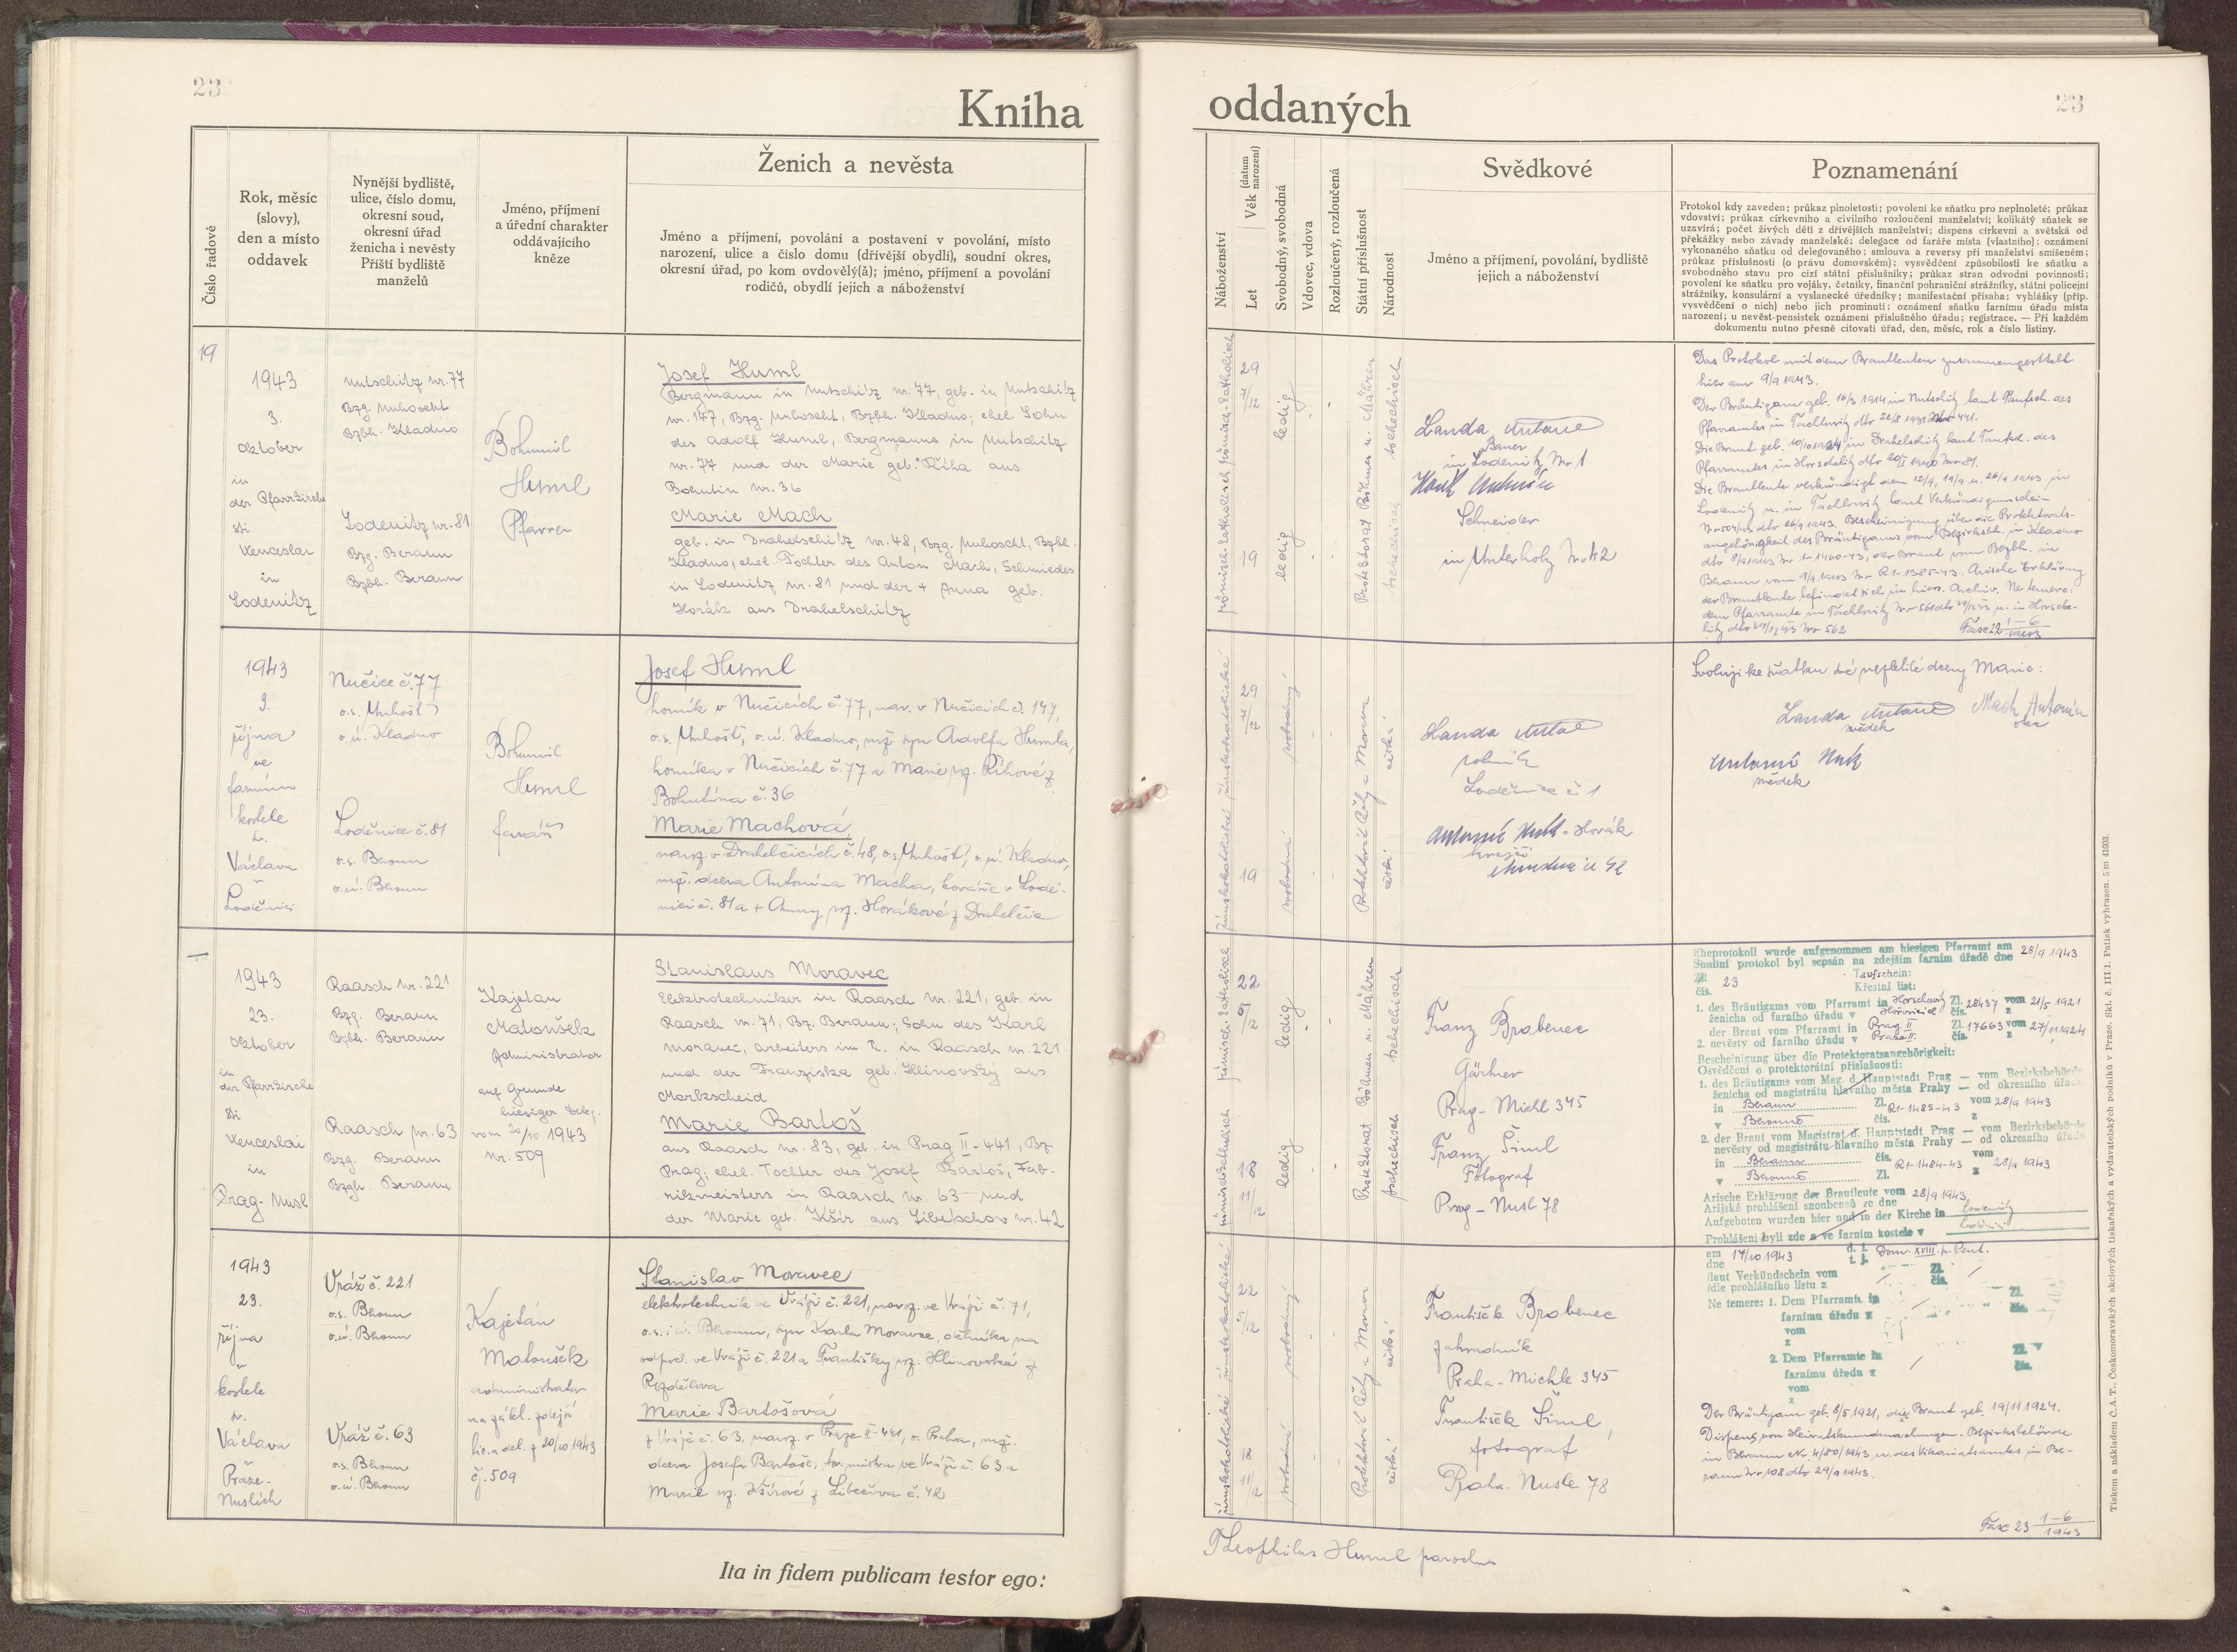 23
Kniha
Číslo řadové
Rok, měsíc
(slovy),
den a místo
oddavek
Nynější bydliště,
ulice, číslo domu,
okresní soud,
okresní úřad
ženicha i nevěsty
Příští bydliště
manželů
Jméno, příjmení
a úřední charakter
oddávajícího
kněze
Ženich a nevěsta
Jméno a příjmení, povolání a postavení v povolání, místo
narození, ulice a číslo domu (dřívější obydlí), soudní okres,
okresní úřad, po kom ovdověl(a); jméno, příjmení a povolání
rodičů, obydlí jejich a náboženství
19
1943
3.
Oktober
in
der Pfarrkirche
Sti
Venceslai
in
Lodenitz
Nutschitz nr. 77
Bzg. Unhoscht
Bzbh. Kladno
Lodenitz nr. 81
Bzg. Beraun
Bzbh. Beraun
Bohumil
Huml
Pfarrer
Josef Huml
Bergmann in Nutschitz nr. 77, geb. in Nutschitz
nr. 147, Bzg. Unhoscht, Bzbh. Kladno; ehel. Sohn
des Adolf Huml, Bergmanns in Nutschitz
nr. 77 und der Marie geb. Říha aus
Bohutin nr. 36
Marie Mach
geb. in Drahelschitz nr. 48, Bzg. Unhoscht, Bzbh.
Kladno, ehel. Tochter des Anton Mach, Schmiedes
in Lodenitz nr. 81 und der + Anna geb.
Horák aus Drahelschitz
1943
3.
října
ve
farním
kostele
sv.
Václava
v
Loděnici
Nučice č. 77
o.s. Unhošť
o.ú. Kladno
Loděnice č. 81
o.s. Beroun
o.ú. Beroun
Bohumil
Huml
farář
Josef Huml
horník v Nučicích č. 77, nar. v Nučicích č. 147,
o.s. Unhošť, o.ú. Kladno, mž. syn Adolfa Humla,
horníka v Nučicích č. 77 a Marie roz. Říhové z
Bohutína č. 36
Marie Machová,
naroz. v Drahelčicích č. 48, o.s. Unhošť, o.ú. Kladno,
mž. dcera Antonína Macha, kováře v Lodě-
nici č. 81 a + Anny roz. Horákové z Drahelčic
1943
23.
Oktober
in
der Pfarrkirche
Sti
Venceslai
in
Prag-Nusl
Raasch nr. 221
Bzg. Beraun
Bzbh. Beraun
Raasch nr. 63
Bzg. Beraun
Bzgh. Beraun
Kajetan
Matoušek
Administrator
auf Grunde
hiesiger Deleg.
vom 20/10 1943
nr. 509
Stanislaus Moravec
Elektrotechniker in Raasch nr. 221, geb. in
Raasch nr. 71, Bz. Beraun; Sohn des Karl
Moravec, Arbeiters im R. in Raasch nr. 221
und der Franziska geb. Hlinovský aus
Marbscheid
Marie Bartoš
aus Raasch nr. 83, geb. in Prag II - 441, Bz
Prag; ehel. Tochter des Josef Bartoš, Fab-
rikmeisters in Raasch nr. 63 und
der Marie geb. Kšír aus Libetschov nr. 42
1943
23.
října
v
kostele
sv.
Václava
v
Praze-
Nuslích
Vráž č. 221
o.s. Beroun
o.ú. Beroun
Vráž č. 63
o.s. Beroun
o.ú. Beroun
Kajetán
Matoušek
administrator
na zákl. zdejší
lic. a del. z 20/10 1943
čj. 509
Stanislav Moravec
elektrotechnik ve Vráži č. 221, naroz. ve Vráži č. 71,
o.s. i ú. Beroun, syn Karla Moravce, dělníka na
odpoč. ve Vráži č. 221 a Františky roz. Hlinovské z
Rozdělova
Marie Bartošová
z Vráže č. 63, naroz. v Praze II-441, o. Praha, mž.
dcera Josefa Bartoše, tov. mistra ve Vráži č. 63 a
Marie roz. Kšírové z Libečova č. 42
Ita in fidem publicam testor ego:
oddaných
23
Náboženství
Věk (datum narození)
Let
Svobodný, svobodná
Vdovec, vdova
Rozloučený, rozloučená
Státní příslušnost
Národnost
Svědkové
Jméno a příjmení, povolání, bydliště
jejich a náboženství
Poznamenání
Protokol kdy zaveden; průkaz plnoletosti; povolení ke sňatku pro neplnoleté; průkaz
vdovství; průkaz církevního a civilního rozloučení manželství; kolikátý sňatek se
uzavírá; počet živých dětí z dřívějších manželství; dispens církevní a světská od
překážky nebo závady manželské; delegace od faráře místa (vlastního); oznámení
vykonaného sňatku od delegovaného; smlouva a reversy při manželství smíšeném;
průkaz příslušnosti (o právu domovském); vysvědčení způsobilosti ke sňatku a
svobodného stavu pro cizí státní příslušníky; průkaz stran odvodní povinnosti;
povolení ke sňatku pro vojáky, četníky, finanční pohraniční strážníky, státní policejní
strážníky, konsulární a vyslanecké úředníky; manifestační přísaha; vyhlášky (příp.
vysvědčení o nich) nebo jich prominutí; oznámení sňatku farnímu úřadu místa
narození; u nevěst-pensistek oznámení příslušného úřadu; registrace. — Při každém
dokumentu nutno přesně citovati úřad, den, měsíc, rok a číslo listiny.
römisch-katholisch römisch-katholisch
29
19
ledig
ledig
Protektorat Böhmen u. Mähren
tschechisch tschechisch
Landa Antonín
Bauer
in Lodenitz Nr 1
Horák Antonín
Schneider
in Unterholz Nr 42
Das Protokol mit dem Brautleuten zusammengestellt
hier am 9/9 1943.
Der Bräutigam geb. 16/3 1914 in Nutschitz laut Taufsch. des
Pfarramtes in Tachlovitz
Die Braut geb. 10/10 1924 in Drahelschitz laut Taufsch. des
Pfarramtes in Horschelitz
Die Brautleute verkündigt dem 12/9, 19/9 u. 26/9 1943 in
Lodenitz u. in Tachlovitz laut Verkündigunschei-
Bescheinigung über die Protektorats-
angehörigkeit des Bräutigams vom Bezirksbh. in Kladno
dto 8/9 1943 Nr 1-1460-43, der Braut vom Bezbh. in
Beraun vom 9/9 1943 Nr R1-1385-43. Arische Erklärung
der Brautleute befindet sich in hies. Archiv. Ne temere:
dem Pfarramte in Tachlovitz Nr 561 u. in Horsche-
litz Nr 562
Fasc 22 1-6/1943
římskokatolické římskokatolické
29
19
svobodný
svobodná
Protektorát Čechy a Morava
česká
česká
Landa Antonín
rolník
Loděnice č. 1
Antonín Horák - Horák
krejčí
Svoluji ke sňatku své nezletilé dcery Marie:
Landa Antonín
svědek
Mach Antonín
otec
Antonín Horák
svědek
römisch-katholisch
22
18
11/12
ledig
ledig
Protektorat Böhmen u. Mähren
tschechisch tschechisch
Franz Brabenec
Gärtner
Prag - Michl 345
Franz Šiml
Fotograf
Prag - Nusl 78
Eheprotokoll wurde aufgenommen am hiesigen Pfarramt am 28/9 1943
Snubní protokol byl sepsán na zdejším farním úřadě dne
Zl. 23
čís.
Taufschein:
Křestní list:
1. des Bräutigams vom Pfarramt in Horschovitz Zl. 28437 vom 21/5 1921
ženicha od farního úřadu v Hořovicích čís. z
der Braut vom Pfarramt in Prag II Zl. 17663 vom 27/11 1924
2. nevěsty od farního úřadu v Praze II. čís. z
Bescheinigung über die Protektoratsangehörigkeit:
Osvědčení o protektorátní příslušnosti:
1. des Bräutigams vom Mag. d. Hauptstadt Prag — vom Bezirksbehörde
ženicha od magistrátu hlavního města Prahy — od okresního úřadu
in Beraun Zl. R1-1485-43 vom 28/9 1943
v Berouně čís. z
2. der Braut vom Magistrat d. Hauptstadt Prag — vom Bezirksbehörde
nevěsty od magistrátu hlavního města Prahy — od okresního úřadu
in Beraun čís. R1-1484-43 vom 28/9 1943
v Berouně Zl. z
Arische Erklärung der Brautleute vom 28/9 1943
Arijské prohlášení snoubenců ze dne
Aufgeboten wurden hier und in der Kirche in Lodenitz
Prohlášeni byli zde a ve farním kostele v
am 17/10 1943 d. i. Dom. XVIII p. Pent.
dne t. j.
/laut Verkündschein vom Zl.
/dle prohlášního listu z čís.
Ne temere: 1. Dem Pfarramte in Zl.
farnímu úřadu v čís.
vom
z
2. Dem Pfarramte in Zl.
farnímu úřadu v čís.
vom
z
Der Bräutigam geb. 8/5 1921, die Braut geb. 19/11 1924.
Dispens von Heiratskundmachungen. Bezirksbehörde
in Beraun Nr. 4/80/1943 u. des Vikariatsamtes in Be-
raun Nr 108 dto 29/9 1943.
Fasc 23 1-6/1943
římskokatolické římskokatolické
22
18
11/12
svobodný
svobodná
Protektorát Čechy a Morava
česká
česká
František Brabenec
zahradník
Praha - Michle 345
František Šiml,
fotograf
Praha - Nusle 78
Theophilus Huml parochus
Tiskem a nákladem Č.A.T., Českomoravských akciových tiskařských a vydavatelských podniků v Praze. Skl. č. III/1. Patisk vyhrazen. 5/m 41603.